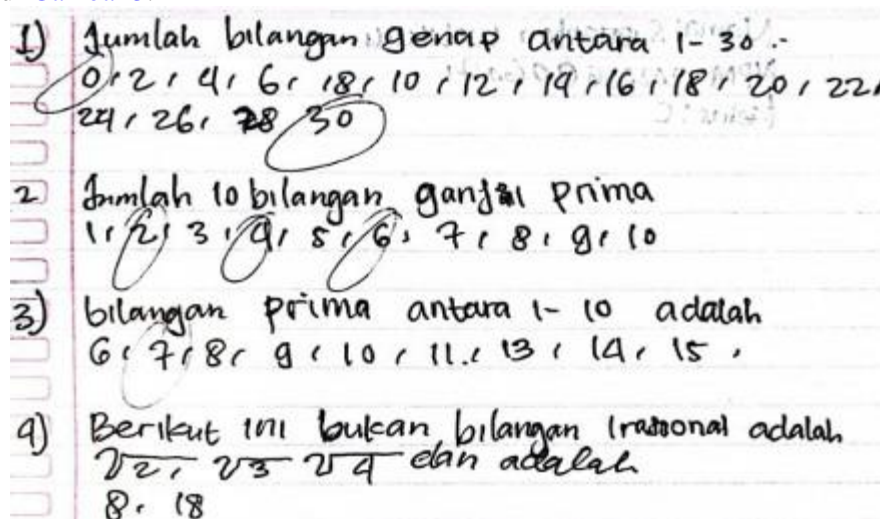 1) Jumlah bilangan genap antara 1-30.-
0, 2, 4, 6, 18, 10, 12, 14, 16, 18, 20, 22,
24, 26, 28 30
2 Jumlah 10 bilangan ganjil prima
1, 2, 3, 4, 5, 6, 7, 8, 9, 10
3) bilangan prima antara 1-10 adalah
6, 7, 8, 9, 10, 11, 13, 14, 15,
4) Berikut ini bukan bilangan Irasional adalah
√2, √3 √4 dan adalah
8, 18